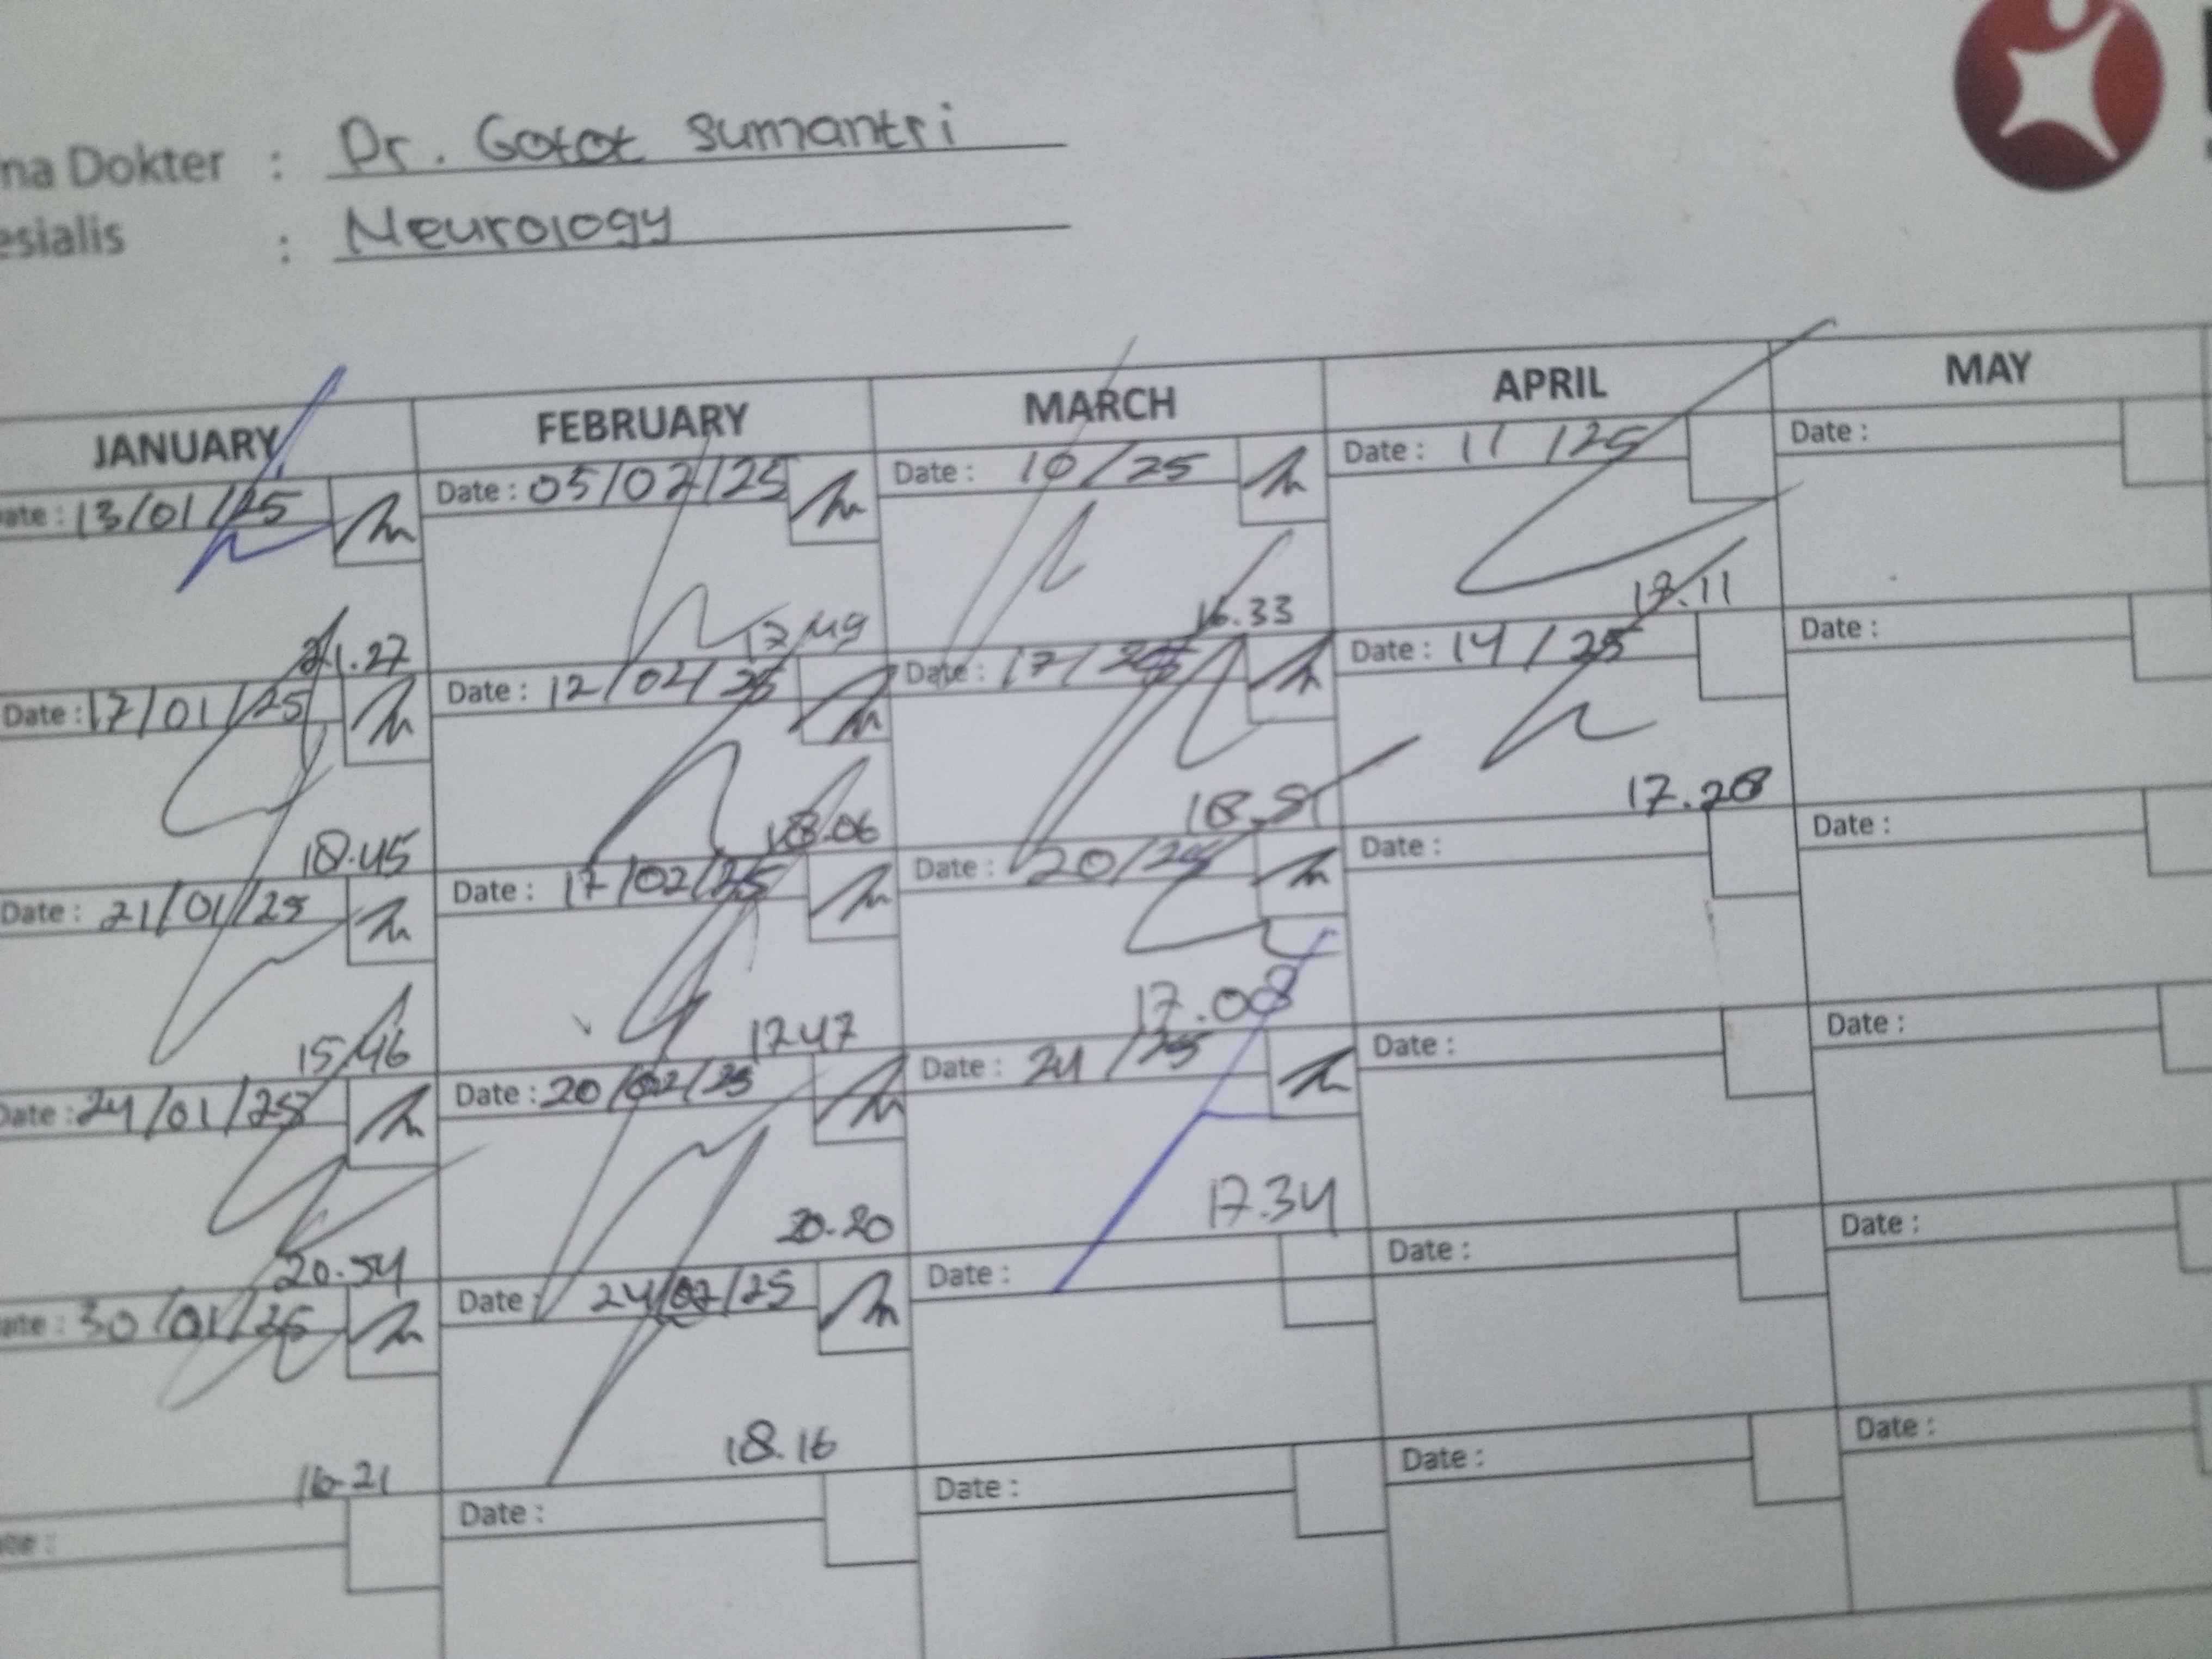 na Dokter : Dr. Gotot Sumantri
esialis : Neurology
JANUARY FEBRUARY MARCH APRIL MAY
ate : 13/01/25 Date : 05/02/25 Date : 10/25 Date : 11/25 Date :
21.27 17.49 16.33 18.11
Date : 17/01/25 Date : 12/02/25 Date : 17/25 Date : 14/25 Date :
18.45 18.06 18.51 17.28
Date : 21/01/25 Date : 17/02/25 Date : 20/25 Date : Date :
15.46 17.47 17.08
Date : 24/01/25 Date : 20/02/25 Date : 24/25 Date : Date :
20.54 20.20 17.34
ate : 30/01/25 Date : 24/02/25 Date : Date : Date :
16.21 18.16
ate : Date : Date : Date : Date :